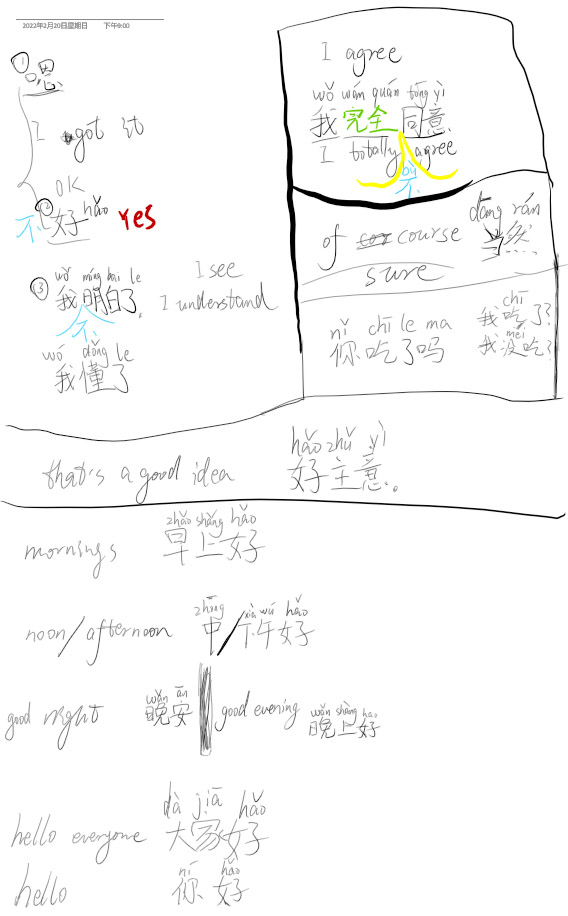 2022年2月20日星期日 下午9:00
① 嗯
I got it
OK
不 ② 好 hǎo Yes
wǒ míng bai le
③ 我明白了. I see
不 I understand
wǒ dǒng le
我懂了
I agree
wǒ wán quán tóng yì
我完全同意
I totally agree
bù
不
dāng rán
of course 当然
sure
nǐ chī le ma
你吃了吗
chī
我吃了?
méi
我没吃?
hǎo zhǔ yì
that's a good idea 好主意。
zhǎo shǎng hǎo
mornings 早上好
zhōng xià wǔ hǎo
noon/afternoon 中/下午好
wǎn ān
good night 晚安
wǎn shàng hao
good evening 晚上好
dà jiā hǎo
hello everyone 大家好
ní hǎo
hello 你好